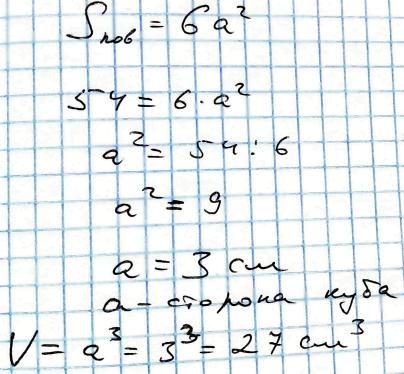 Sпов = 6a²
54 = 6·a²
a² = 54 : 6
a² = 9
a = 3 см
a – сторона куба
V = a³ = 3³ = 27 см³